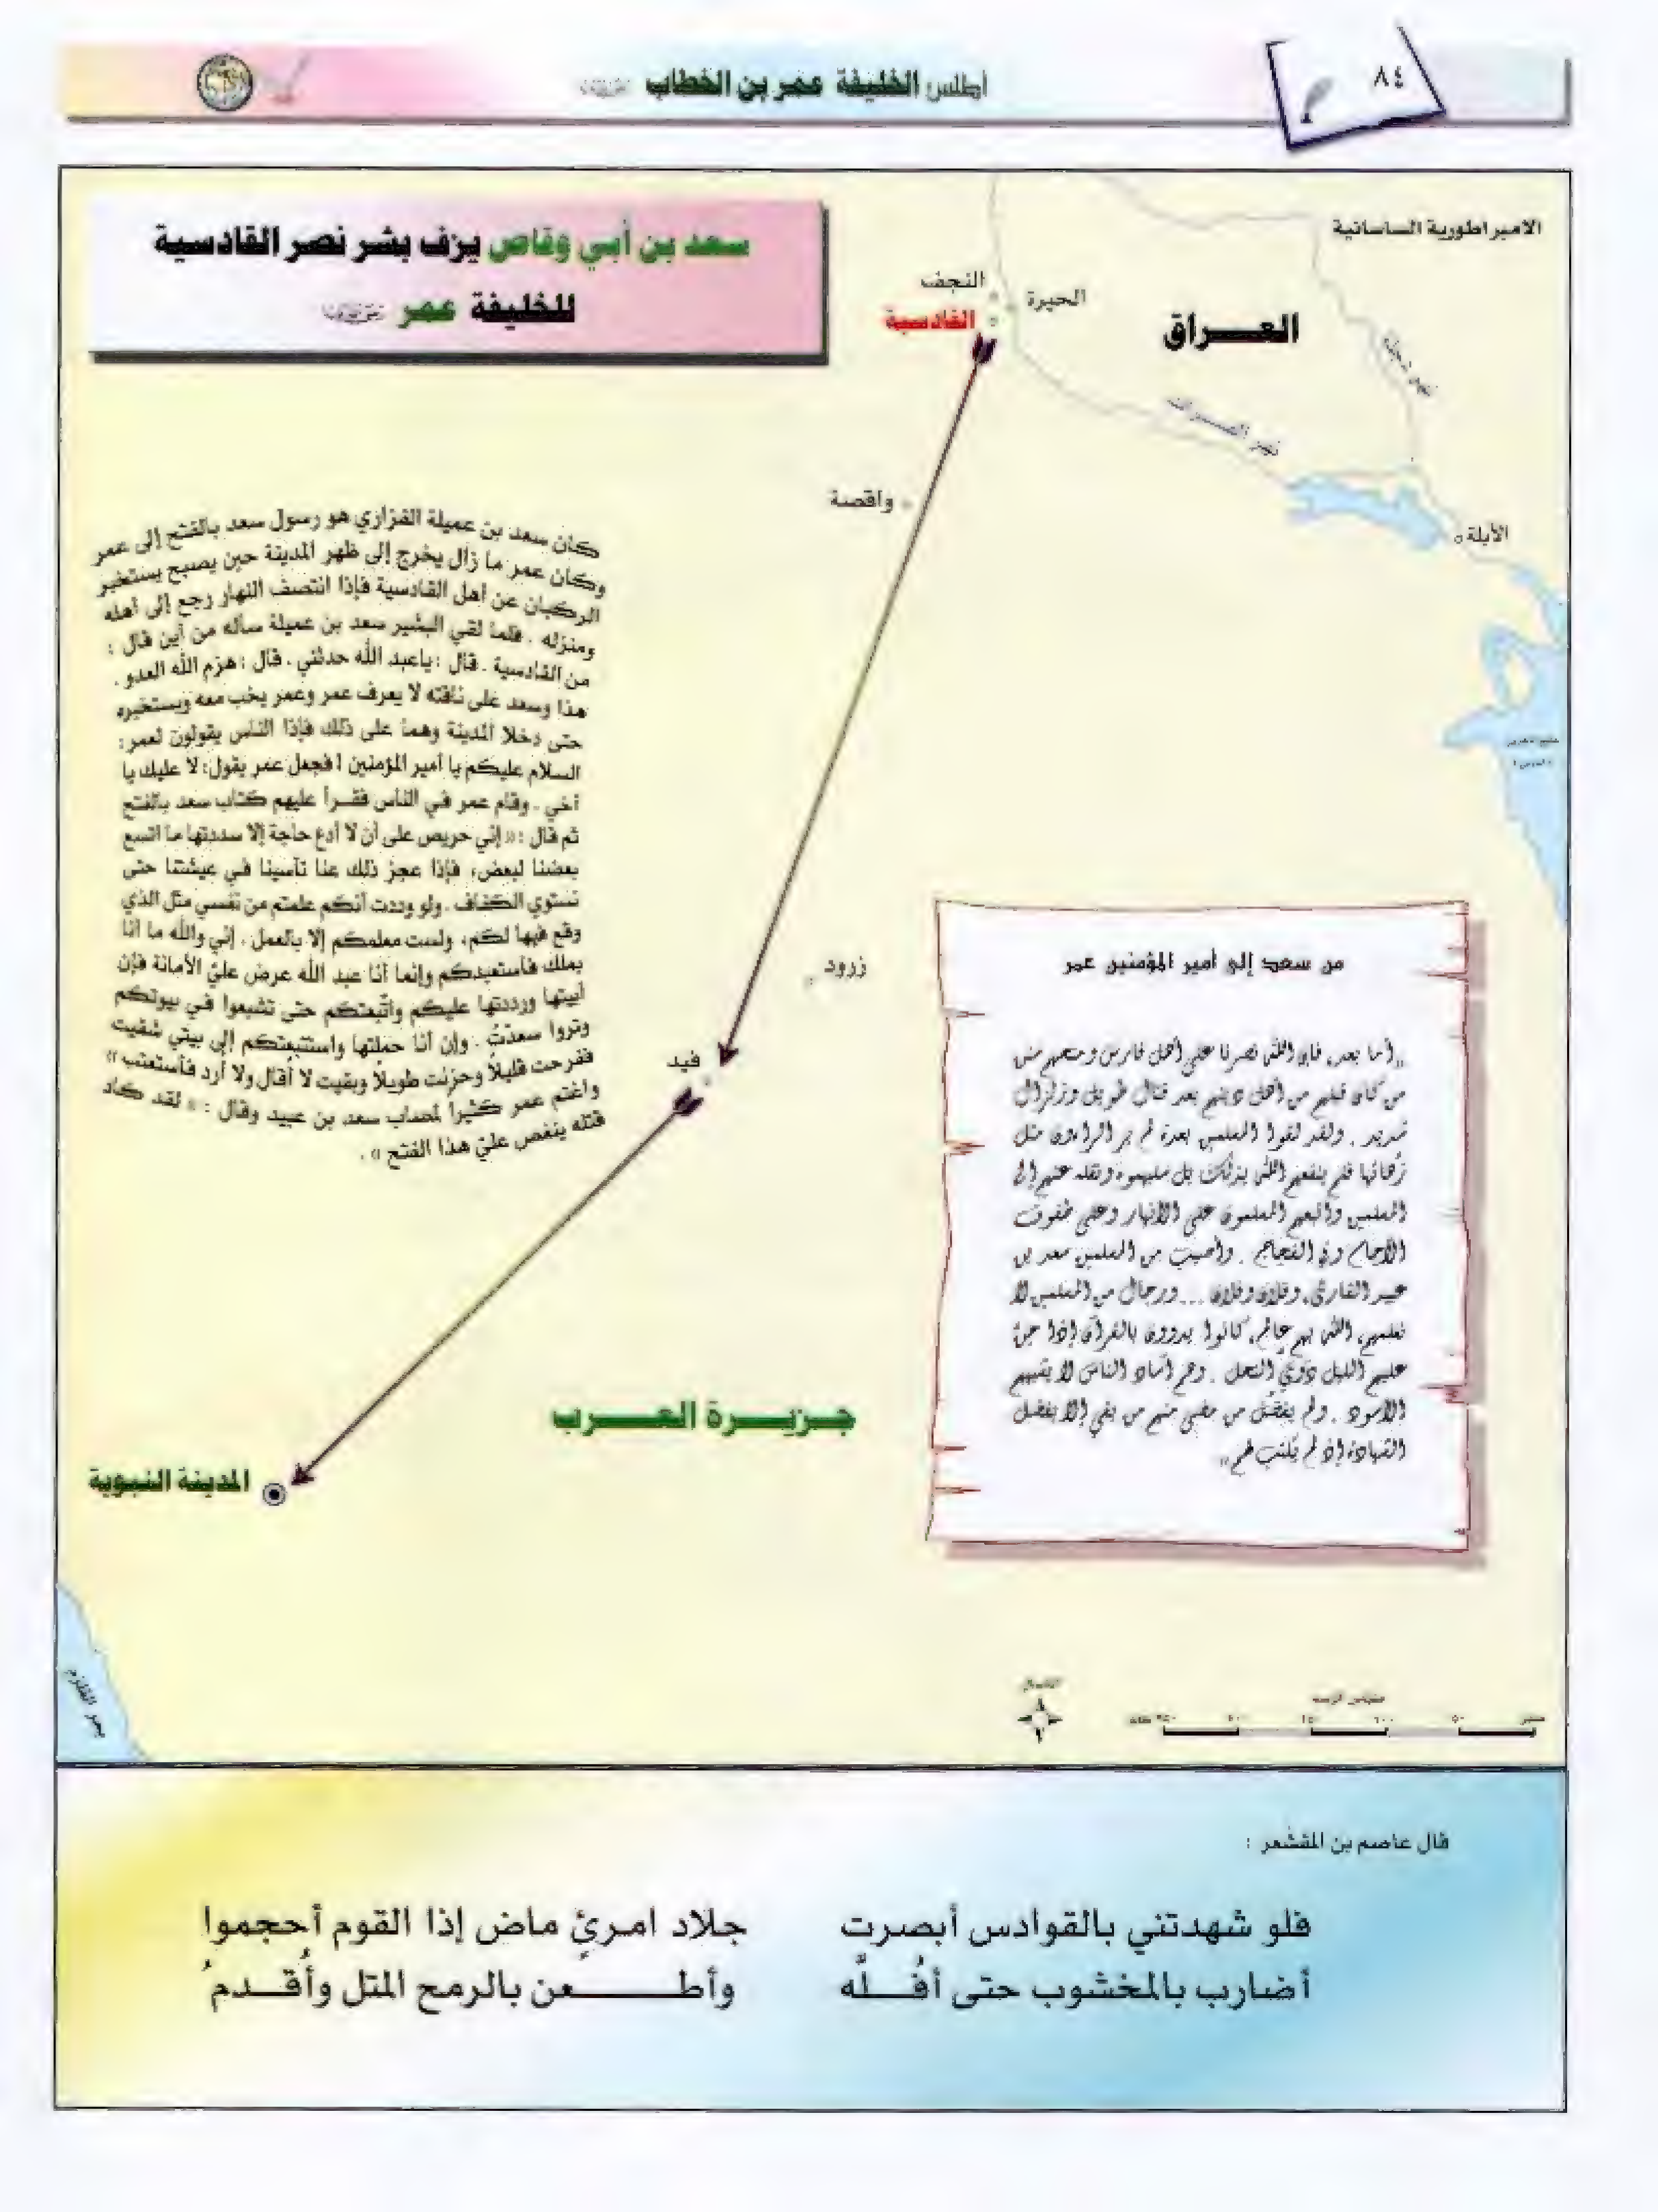 ٨٤
أطلس الخليفة عمر بن الخطاب
سعد بن أبي وقاص يزف بشر نصر القادسية
للخليفة عمر
الامبراطورية الساسانية
النجف
الحيرة
القادسية
العـــراق
نهر دجلة
نهر الفـــرات
واقصة
الأبلة
كان سعد بن عميلة الفزاري هو رسول سعد بالفتح إلى عمر
وكان عمر ما زال يخرج إلى ظهر المدينة حين يصبح يستخبر
الركبان عن أهل القادسية فإذا انتصف النهار رجع إلى أهله
ومنزله . فلما لقي البشير سعد بن عميلة سأله من أين قال :
من القادسية . قال : ياعبد الله حدثني . قال : هزم الله العدو .
هذا وسعد على ناقته لا يعرف عمر وعمر يخب معه ويستخبره
حتى دخلا المدينة وهما على ذلك فإذا الناس يقولون لعمر:
السلام عليكم يا أمير المؤمنين ! فجعل عمر يقول: لا عليك يا
أخي . وقام عمر في الناس فقـرأ عليهم كتاب سعد بالفتح
ثم قال : « إني حريص على أن لا أدع حاجة إلا سددتها ما اتسع
بعضنا لبعض، فإذا عجز ذلك عنا تأسينا في عيشتنا حتى
نستوي الكفاف . ولو وددت أنكم علمتم من نفسي مثل الذي
وقع فيها لكم، ولست معلمكم إلا بالعمل . إني والله ما أنا
بملك فأستعبدكم وإنما أنا عبد الله عرض عليّ الأمانة فإن
أبيتها ورددتها عليكم واتّبعتكم حتى تشبعوا في بيوتكم
وتروا سعدتُ . وإن أنا حملتها واستتبعتكم إلى بيتي شقيت
ففرحت قليلاً وحزنت طويلاً وبقيت لا أُقال ولا أُرد فأستعتب »
واغتم عمر كثيراً لمصاب سعد بن عبيد وقال : « لقد كاد
قتله ينغص عليّ هذا الفتح » .
زرود
فيد
من سعد إلى أمير المؤمنين عمر
«أما بعد، فإن اللّٰه نصرنا على أهل فارس ومنحهم سنن
من كان قبلهم من أهل دينهم بعد قتال طويل وزلزال
شديد . ولقد لقوا المسلمين بعدة لم ير الراءون مثل
زُهائها فلم ينفعهم اللّٰه بذلك بل سلبهموه ونقله عنهم إلى
المسلمين واتبعهم المسلمون على الأنهار وعلى طفوف
الآجام وفي الفجاج . وأصيب من المسلمين سعد بن
عبيد القارئ، وفلان وفلان ... ورجال من المسلمين لا
نعلمهم، اللّٰه بهم عالم، كانوا يدوون بالقرآن إذا جنّ
عليهم الليل دَوِيّ النحل . وهم آساد الناس لا يشبههم
الأسود . ولم يفضُل من مضى منهم من بقي إلا بفضل
الشهادة إذ لم تكتب لهم»
جـزيـــرة العـــرب
المدينة النبوية
بحر القلزم
الشمال
مقياس الرسم
صفر
٥٠
١٠٠
١٥٠
قال عاصم بن المقشعر :
فلو شهدتني بالقوادس أبصرت جلاد امـرئٍ ماض إذا القوم أحجموا
أضارب بالمخشوب حتى أفُـــلَّه وأطـــــــعن بالرمح المتل وأُقـــدمُ